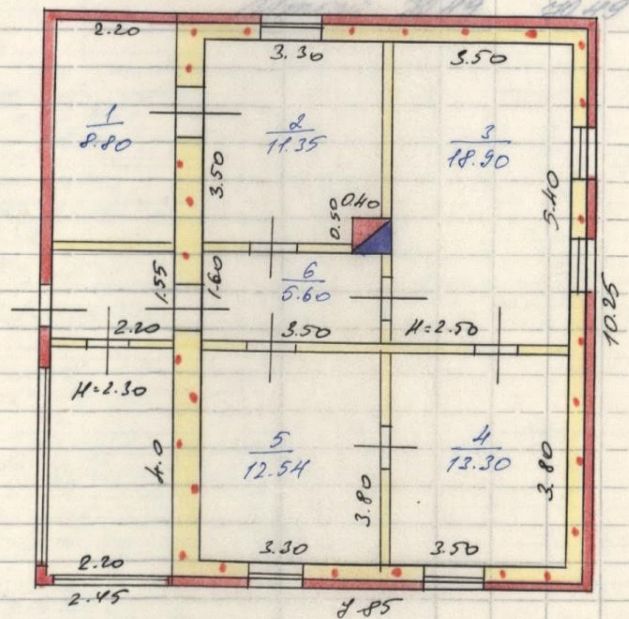 2.20
3.30
3.50
1
8.80
2
11.35
3
18.90
3.50
0.50
0.40
5.40
10.25
1.55
1.60
6
5.60
2.20
3.50
H=2.50
H=2.30
4.0
5
12.54
4
13.30
3.80
3.80
2.20
3.30
3.50
2.45
7.85